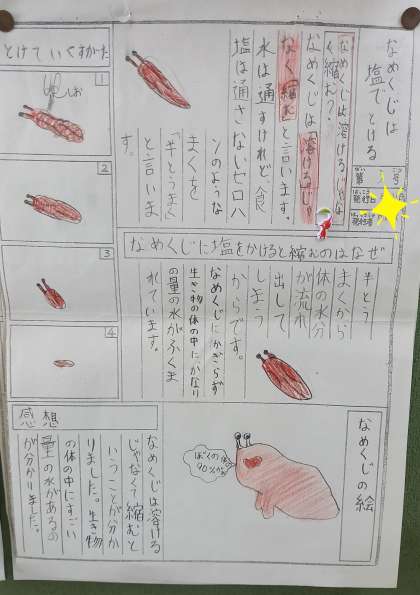 なめくじは
塩でとける
第 号
発行日
発行者
なめくじは溶ける
縮む?
なめくじは「溶ける」じゃ
なく「縮む」と言います。
水は通すけれど、食
塩は通さないセロハ
ンのような
まくを
「半とうまく」
と言いま
す。
とけていくすがた
1
しお
2
3
4
なめくじに塩をかけると縮むのはなぜ
半とう
まくから
体の水分
が流れ
出して
しまう
からです。
なめくじにかぎらず
生き物の体の中に、かなり
の量の水がふくま
れています。
なめくじの絵
ぼくの
90%が
感想
なめくじは溶ける
じゃなくて縮むと
いうことが分か
りました。生き物
の体の中にすごい
量の水があるの
が分かりました。